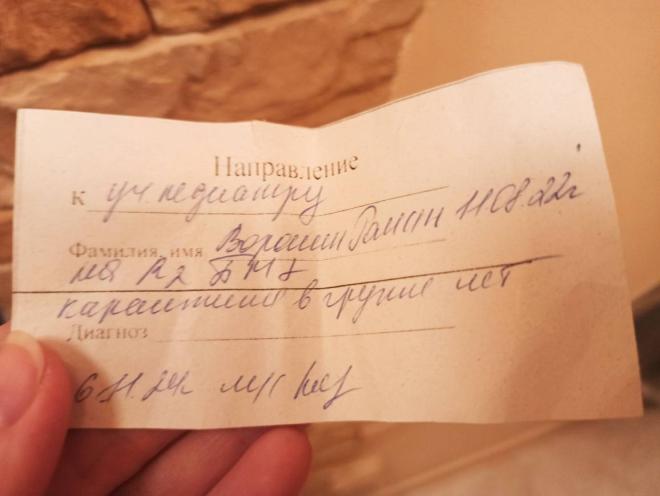 Направление
к уч. педиатру
Фамилия, имя Ворошин Рамин 11.08.22г
на R2 БМ
карантина в группе нет
Диагноз
6.11.24г. м/с